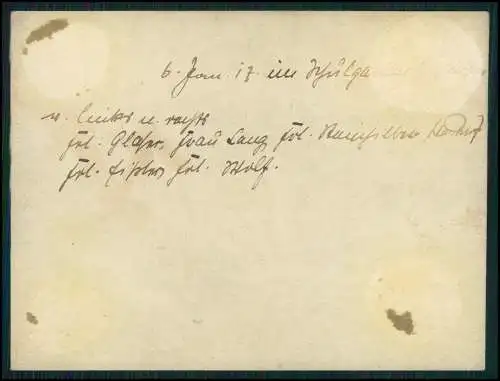 6. Jan. 17. im Schulga
v. links n. rechts
Frl. Glaser, Frau Lang Frl.
Frl. Fischer, Frl. Wolf.